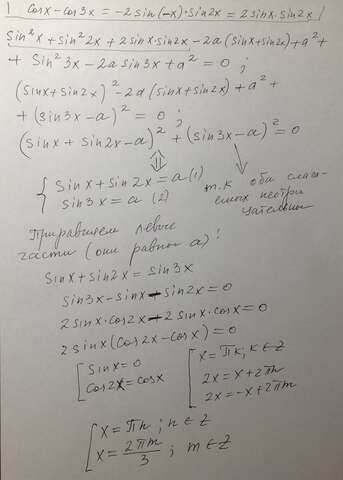 1 cosx - cos3x = -2 sin(-x)·sin2x = 2 sinx·sin2x
sin²x + sin²2x + 2 sinx·sin2x - 2a (sinx + sin2x) + a² +
+ sin²3x - 2a sin3x + a² = 0 ;
(sinx + sin2x)² - 2a (sinx + sin2x) + a² +
+ (sin3x - a)² = 0 ;
(sinx + sin2x - a)² + (sin3x - a)² = 0
⇕
{ sinx + sin2x = a (1)
sin3x = a (2)
т.к оба слага-
емых неотри
цательны
Приравняем левые
части (они равны a) :
sinx + sin2x = sin3x
sin3x - sinx - sin2x = 0
2 sinx·cos2x - 2 sinx·cosx = 0
2 sinx (cos2x - cosx) = 0
[ sinx = 0
cos2x = cosx
[ x = πk, k ∈ Z
2x = x + 2πn
2x = -x + 2πm
[ x = πn ; n ∈ Z
x = 2πm/3 ; m ∈ Z